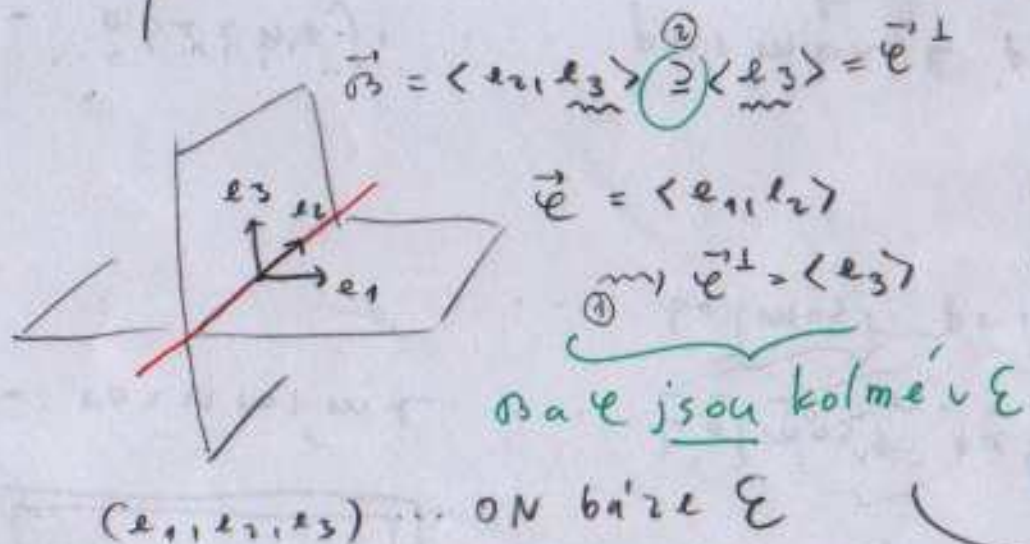 ②
𝓑⃗ = <e2, e3> ⊇ <e3> = 𝓒⃗^⊥
e3
e2
e1
𝓒⃗ = <e1, e2>
① ⇝ 𝓒⃗^⊥ = <e3>
𝓑 a 𝓒 jsou kolmé v 𝓔
(e1, e2, e3) ... ON báze 𝓔